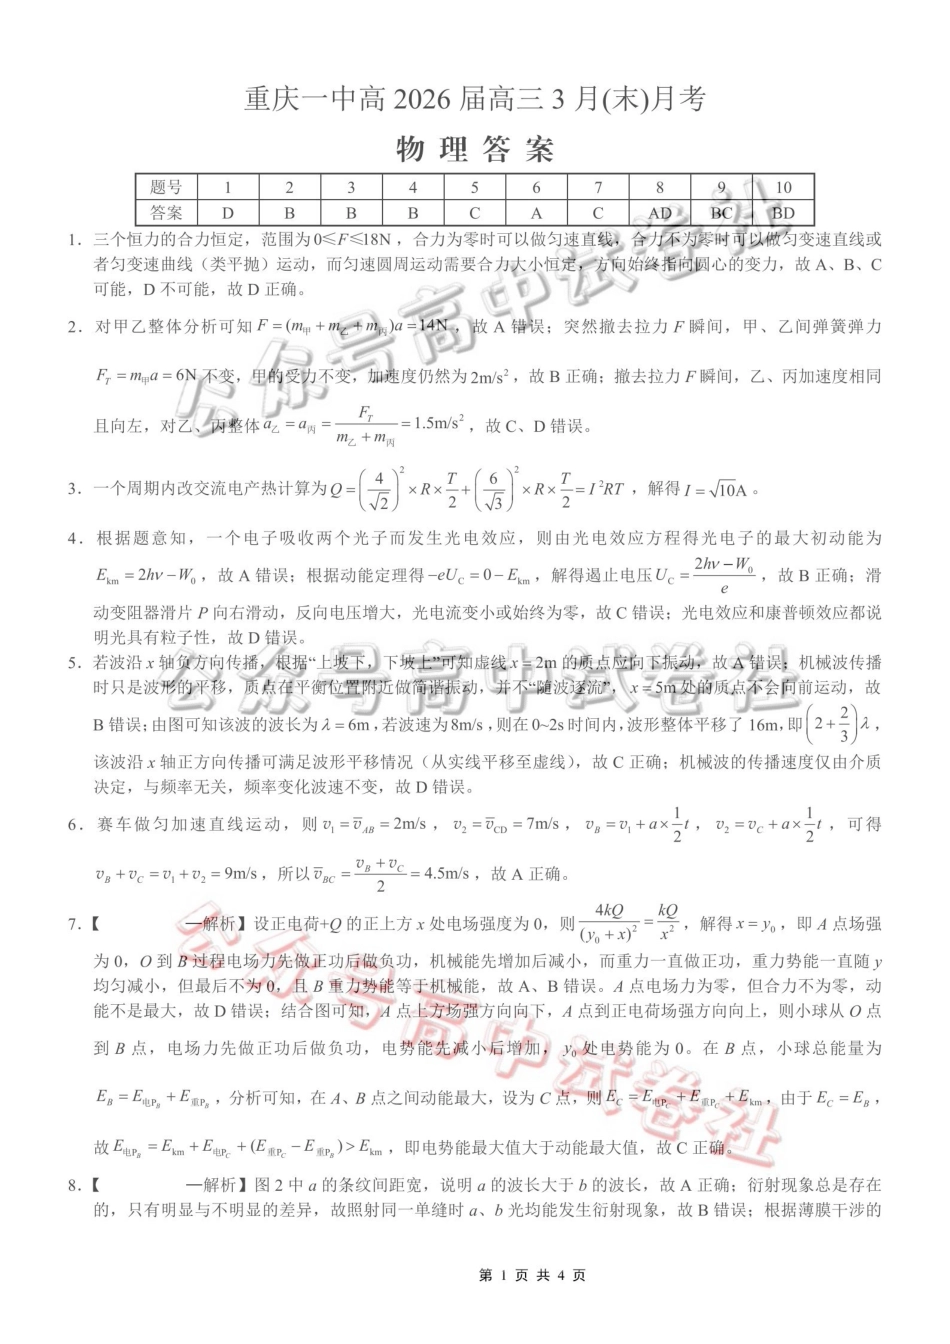 重庆一中高 2026 届高三 3 月(末)月考
物 理 答 案
题号 1 2 3 4 5 6 7 8 9 10
答案 D B B B C A C AD BC BD
1. 三个恒力的合力恒定，范围为 0≤F≤18N，合力为零时可以做匀速直线，合力不为零时可以做匀变速直线或
者匀变速曲线（类平抛）运动，而匀速圆周运动需要合力大小恒定，方向始终指向圆心的变力，故 A、B、C
可能，D 不可能，故 D 正确。
2. 对甲乙整体分析可知 F = (m甲 + m乙 + m丙)a = 14N，故 A 错误；突然撤去拉力 F 瞬间，甲、乙间弹簧弹力
F_T = m甲a = 6N 不变，甲的受力不变，加速度仍然为 2m/s²，故 B 正确；撤去拉力 F 瞬间，乙、丙加速度相同
且向左，对乙、丙整体 a乙 = a丙 = F_T/(m乙 + m丙) = 1.5m/s²，故 C、D 错误。
3. 一个周期内改交流电产热计算为 Q = (4/√2)² × R × T/2 + (6/√3)² × R × T/2 = I²RT，解得 I = √10A。
4. 根据题意知，一个电子吸收两个光子而发生光电效应，则由光电效应方程得光电子的最大初动能为
E_km = 2hν − W₀，故 A 错误；根据动能定理得 −eU_C = 0 − E_km，解得遏止电压 U_C = (2hν − W₀)/e，故 B 正确；滑
动变阻器滑片 P 向右滑动，反向电压增大，光电流变小或始终为零，故 C 错误；光电效应和康普顿效应都说
明光具有粒子性，故 D 错误。
5. 若波沿 x 轴负方向传播，根据“上坡下，下坡上”可知虚线 x = 2m 的质点应向下振动，故 A 错误；机械波传播
时只是波形的平移，质点在平衡位置附近做简谐振动，并不“随波逐流”，x = 5m 处的质点不会向前运动，故
B 错误；由图可知该波的波长为 λ = 6m，若波速为 8m/s，则在 0~2s 时间内，波形整体平移了 16m，即 (2 + 2/3)λ，
该波沿 x 轴正方向传播可满足波形平移情况（从实线平移至虚线），故 C 正确；机械波的传播速度仅由介质
决定，与频率无关，频率变化波速不变，故 D 错误。
6. 赛车做匀加速直线运动，则 v₁ = v̄_AB = 2m/s，v₂ = v̄_CD = 7m/s，v_B = v₁ + a × 1/2 t，v₂ = v_C + a × 1/2 t，可得
v_B + v_C = v₁ + v₂ = 9m/s，所以 v̄_BC = (v_B + v_C)/2 = 4.5m/s，故 A 正确。
7.【 —解析】设正电荷+Q 的正上方 x 处电场强度为 0，则 4kQ/(y₀ + x)² = kQ/x²，解得 x = y₀，即 A 点场强
为 0，O 到 B 过程电场力先做正功后做负功，机械能先增加后减小，而重力一直做正功，重力势能一直随 y
均匀减小，但最后不为 0，且 B 重力势能等于机械能，故 A、B 错误。A 点电场力为零，但合力不为零，动
能不是最大，故 D 错误；结合图可知，A 点上方场强方向向下，A 点到正电荷场强方向向上，则小球从 O 点
到 B 点，电场力先做正功后做负功，电势能先减小后增加，y₀ 处电势能为 0。在 B 点，小球总能量为
E_B = E_电P_B + E_重P_B，分析可知，在 A、B 点之间动能最大，设为 C 点，则 E_C = E_电P_C + E_重P_C + E_km，由于 E_C = E_B，
故 E_电P_B = E_km + E_电P_C + (E_重P_C − E_重P_B) > E_km，即电势能最大值大于动能最大值，故 C 正确。
8.【 —解析】图 2 中 a 的条纹间距宽，说明 a 的波长大于 b 的波长，故 A 正确；衍射现象总是存在
的，只有明显与不明显的差异，故照射同一单缝时 a、b 光均能发生衍射现象，故 B 错误；根据薄膜干涉的
第 1 页 共 4 页
公众号高中试卷社
公众号高中试卷社
公众号高中试卷社